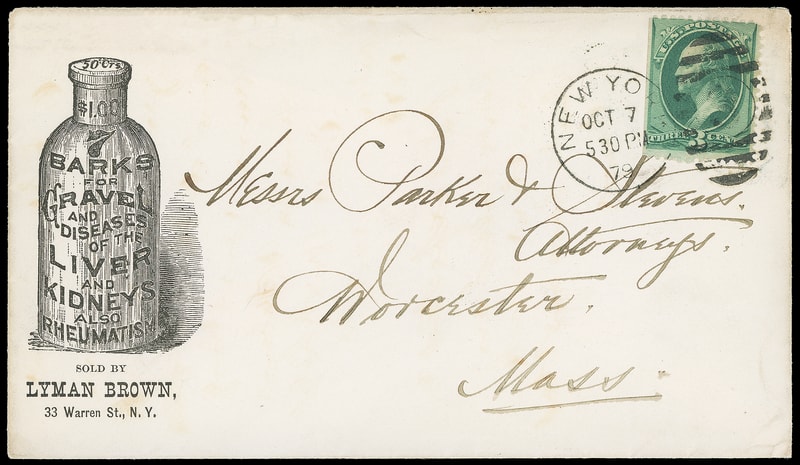 50 Cts.
$1.00
7
BARKS
FOR
GRAVEL
AND
DISEASES
OF THE
LIVER
AND
KIDNEYS
ALSO
RHEUMATISM
SOLD BY
LYMAN BROWN,
33 Warren St., N. Y.
NEW YO
OCT 7
530 PM
79
U.S. POSTAGE
3
Messrs Parker & Stevens.
Attorneys.
Worcester.
Mass.